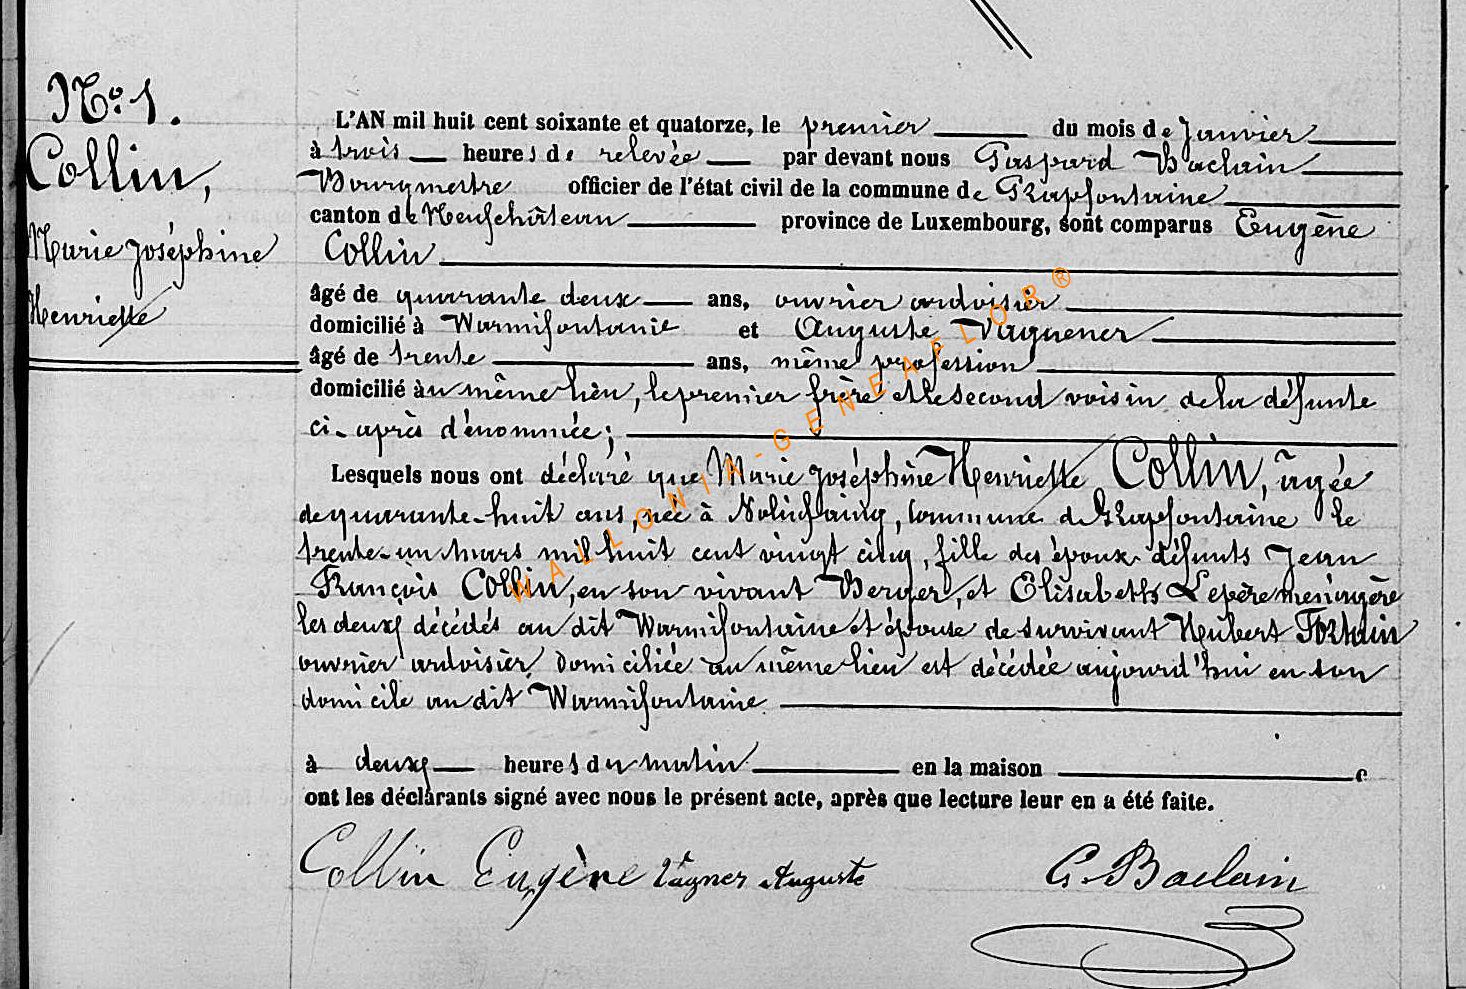 N° 1.
Collin,
Marie Joséphine
Henriette
L'AN mil huit cent soixante et quatorze, le premier du mois de Janvier
à trois heures de relevée par devant nous Gaspard Baclain
Bourgmestre officier de l'état civil de la commune de Grapfontaine
canton de Neufchâteau province de Luxembourg, sont comparus Eugène
Collin
âgé de quarante deux ans, ouvrier ardoisier
domicilié à Warmifontanie et Auguste Vaguener
âgé de trente ans, même profession
domicilié au même lieu, le premier frère et le second voisin de la défunte
ci-après dénommée;
Lesquels nous ont déclaré que Marie Joséphine Henriette Collin, âgée
de quarante-huit ans, née à Nolinfaing, commune de Grapfontaine le
trente-un mars mil huit cent vingt cinq, fille des époux défunts Jean
François Collin, en son vivant Berger, et Elisabeth Lepère ménagère
les deux décédés au dit Warmifontaine et épouse de survivant Hubert Fortain
ouvrier ardoisier, domiciliée au même lieu est décédée aujourd'hui en son
domicile au dit Warmifontaine
à deux heures du matin en la maison
ont les déclarants signé avec nous le présent acte, après que lecture leur en a été faite.
Collin Eugène Vagner Auguste G. Baclain
WALLONIA-GENEAFLOR®